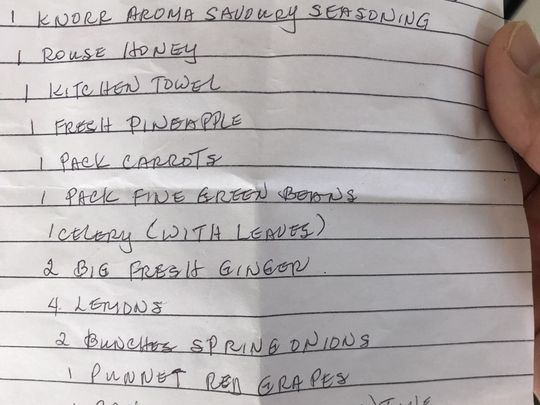 1 KNORR AROMA SAVOURY SEASONING
1 ROUSE HONEY
1 KITCHEN TOWEL
1 FRESH PINEAPPLE
1 PACK CARROTS
1 PACK FINE GREEN BEANS
1 CELERY (WITH LEAVES)
2 BIG FRESH GINGER.
4 LEMONS
2 BUNCHES SPRING ONIONS
1 PUNNET RED GRAPES